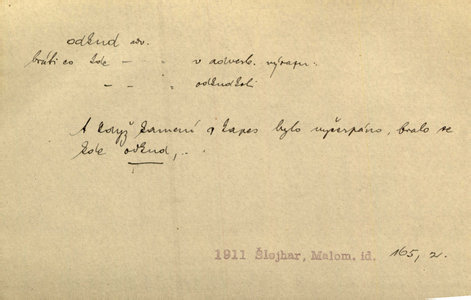 odkud adv.
bráti co kde — - — v adverb. výrazu:
— - — „ odkudkoli
A když kamení z kapes bylo vyčerpáno, bralo se
kde odkud,..
1911 Šlejhar, Malom. id. 165, 2.